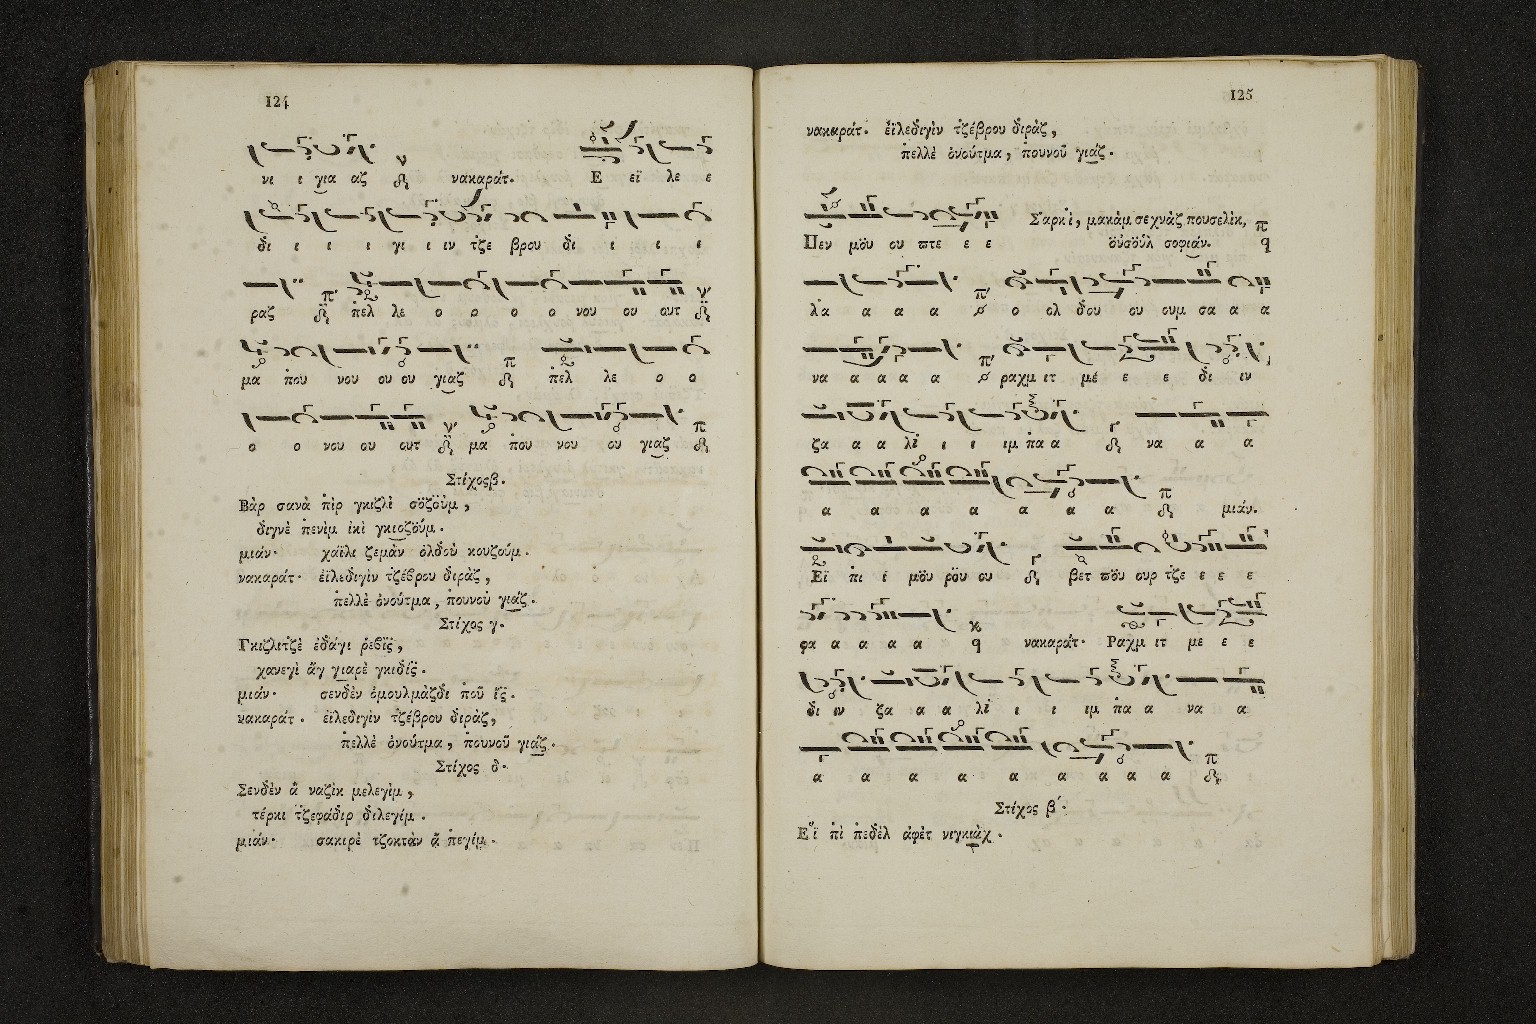 124
νι ι για αζ νακαράτ. Ε εϊ λε ε
δι ι ι ι γι ι ιν τζε βρου δι ι ι ι
ραζ πελ λε ο ο ο ο νου ου ουτ
μα που νου ου ου γιαζ πελ λε ο ο
ο ο νου ου ουτ μα που νου ου γιαζ
Στίχοςβ.
Βὰρ σανὰ πὶρ γκιζλὲ σὅζοὺμ,
διγνὲ πενὶμ ἰκὶ γκιοζοὺμ.
μιάν· χαϊλι ζεμὰν ὀλδοὺ κουζούμ.
νακαράτ· εἰλεδιγὶν τζέβρου διρὰζ,
πελλὲ ὀνούτμα, πουνοὺ γιάζ.
Στίχος γ.
Γκιζλιτζὲ ἐδάγι ῥεβῒς,
χανεγὶ ἄγ γιαρὲ γκιδίς.
μιάν· σενδὲν ὀμουλμὰζδι ποῦ ἴς.
νακαράτ. εἰλεδιγὶν τζέβρου διρὰζ,
πελλὲ ὀνούτμα, πουνοῦ γιάζ.
Στίχος δ.
Σενδὲν ἂ ναζὶκ μελεγὶμ,
τέρκι τζεφάδιρ διλεγίμ.
μιάν· σακιρὲ τζοκτὰν ἂ πεγίμ.
125
νακαράτ. εἰλεδιγὶν τζέβρου διρὰζ,
πελλὲ ὀνούτμα, πουνοῦ γιάζ.
Σαρκὶ, μακὰμ σεχνὰζ πουσελὶκ, π
Πεν μὅυ ου πτε ε ε οὐσοὺλ σοφιάν. q
λὰ α α α ο ολ δου ου ουμ σα α α
να α α α α ραχμ ιτ μέ ε ε δι ιν
ζα α α λὶ ι ι ιμ πα α να α α
α α α α α α α μιάν.
Εϊ πι ι μὅυ ρὅυ ου βετ πὅυ ουρ τζε ε ε ε
φα α α α α q νακαράτ· Ραχμ ιτ με ε ε
δι ιν ζα α α λὶ ι ι ιμ πα α να α
α α α α α α α α α
Στίχος β΄.
Εἴϊ πὶ πεδὲλ ἀφὲτ νιγκιὰχ.